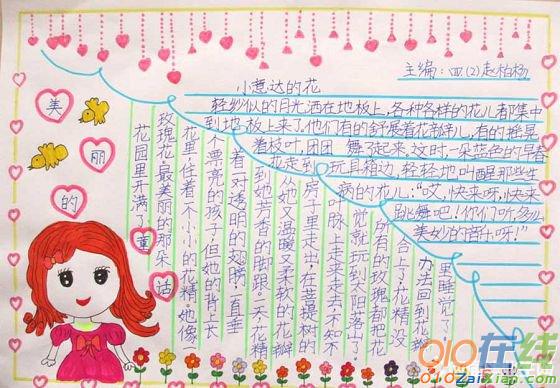 主编:四(2)赵柏杨
美
丽
的
童
话
小意达的花
轻纱似的月光洒在地板上,各种各样的花儿都集中
到地板上来了。他们有的舒展着花瓣儿,有的摇晃
着枝叶,团团 舞了起来。这时,一朵蓝色的早春
花走到玩具箱边,轻轻地叫醒那些生
病的花儿:“哎,快来呀,快来
跳舞吧!你们听,多么
美妙的音乐呀!”
花园里开满了
玫瑰花,最美丽的那朵
花里,住着个小小的花精,她像
个漂亮的孩子,但她的背上长
着一对透明的翅膀,一直垂
到她芳香的脚跟。一天,花精
从她又温暖又柔软的花瓣
房子里走出,在菩提树的
叶脉上走来走去,不知不
觉就玩到太阳落山了,
所有的玫瑰都把花
合上了,花精没
办法回到花瓣
里睡觉了。
010在线
010ZaiXian.com